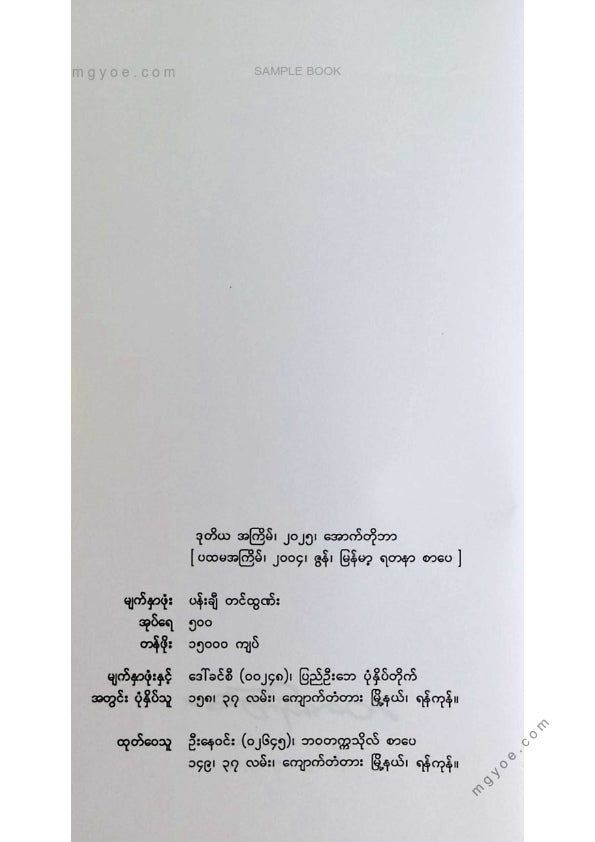 mgyoe.com
SAMPLE BOOK
ဒုတိယ အကြိမ်၊ ၂၀၂၅၊ အောက်တိုဘာ
[ ပထမအကြိမ်၊ ၂၀၀၄၊ ဇွန်၊ မြန်မာ့ ရတနာ စာပေ ]
မျက်နှာဖုံး ပန်းချီ တင်ထွဏ်း
အုပ်ရေ ၅၀၀
တန်ဖိုး ၁၅၀၀၀ ကျပ်
မျက်နှာဖုံးနှင့် ဒေါ်ခင်စီ (၀၀၂၄၈)၊ ပြည်ဦးဘေ ပုံနှိပ်တိုက်
အတွင်း ပုံနှိပ်သူ ၁၅၈၊ ၃၇ လမ်း၊ ကျောက်တံတား မြို့နယ်၊ ရန်ကုန်။
ထုတ်ဝေသူ ဦးနေဝင်း (၀၂၆၄၅)၊ ဘဝတက္ကသိုလ် စာပေ
၁၄၉၊ ၃၇ လမ်း၊ ကျောက်တံတား မြို့နယ်၊ ရန်ကုန်။
mgyoe.com